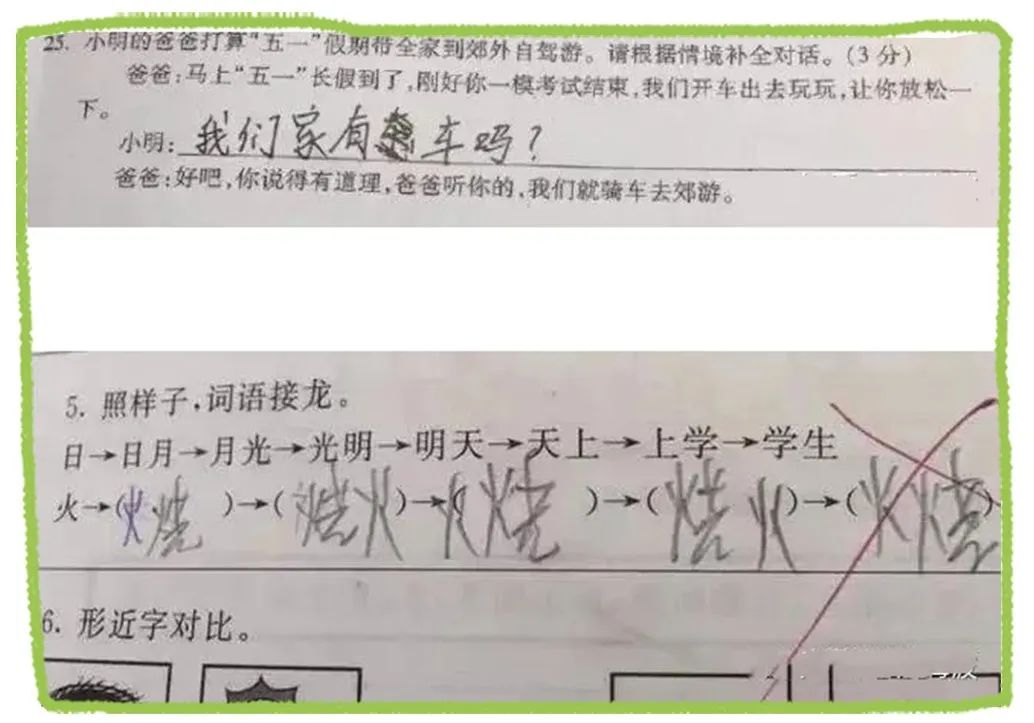 25. 小明的爸爸打算“五一”假期带全家到郊外自驾游。请根据情境补全对话。(3分)
爸爸:马上“五一”长假到了,刚好你一模考试结束,我们开车出去玩玩,让你放松一
下。
小明:我们家有车吗?
爸爸:好吧,你说得有道理,爸爸听你的,我们就骑车去郊游。
5. 照样子,词语接龙。
日→日月→月光→光明→明天→天上→上学→学生
火→(火烧)→(烧火)→(火烧)→(烧火)→(火烧)
6. 形近字对比。